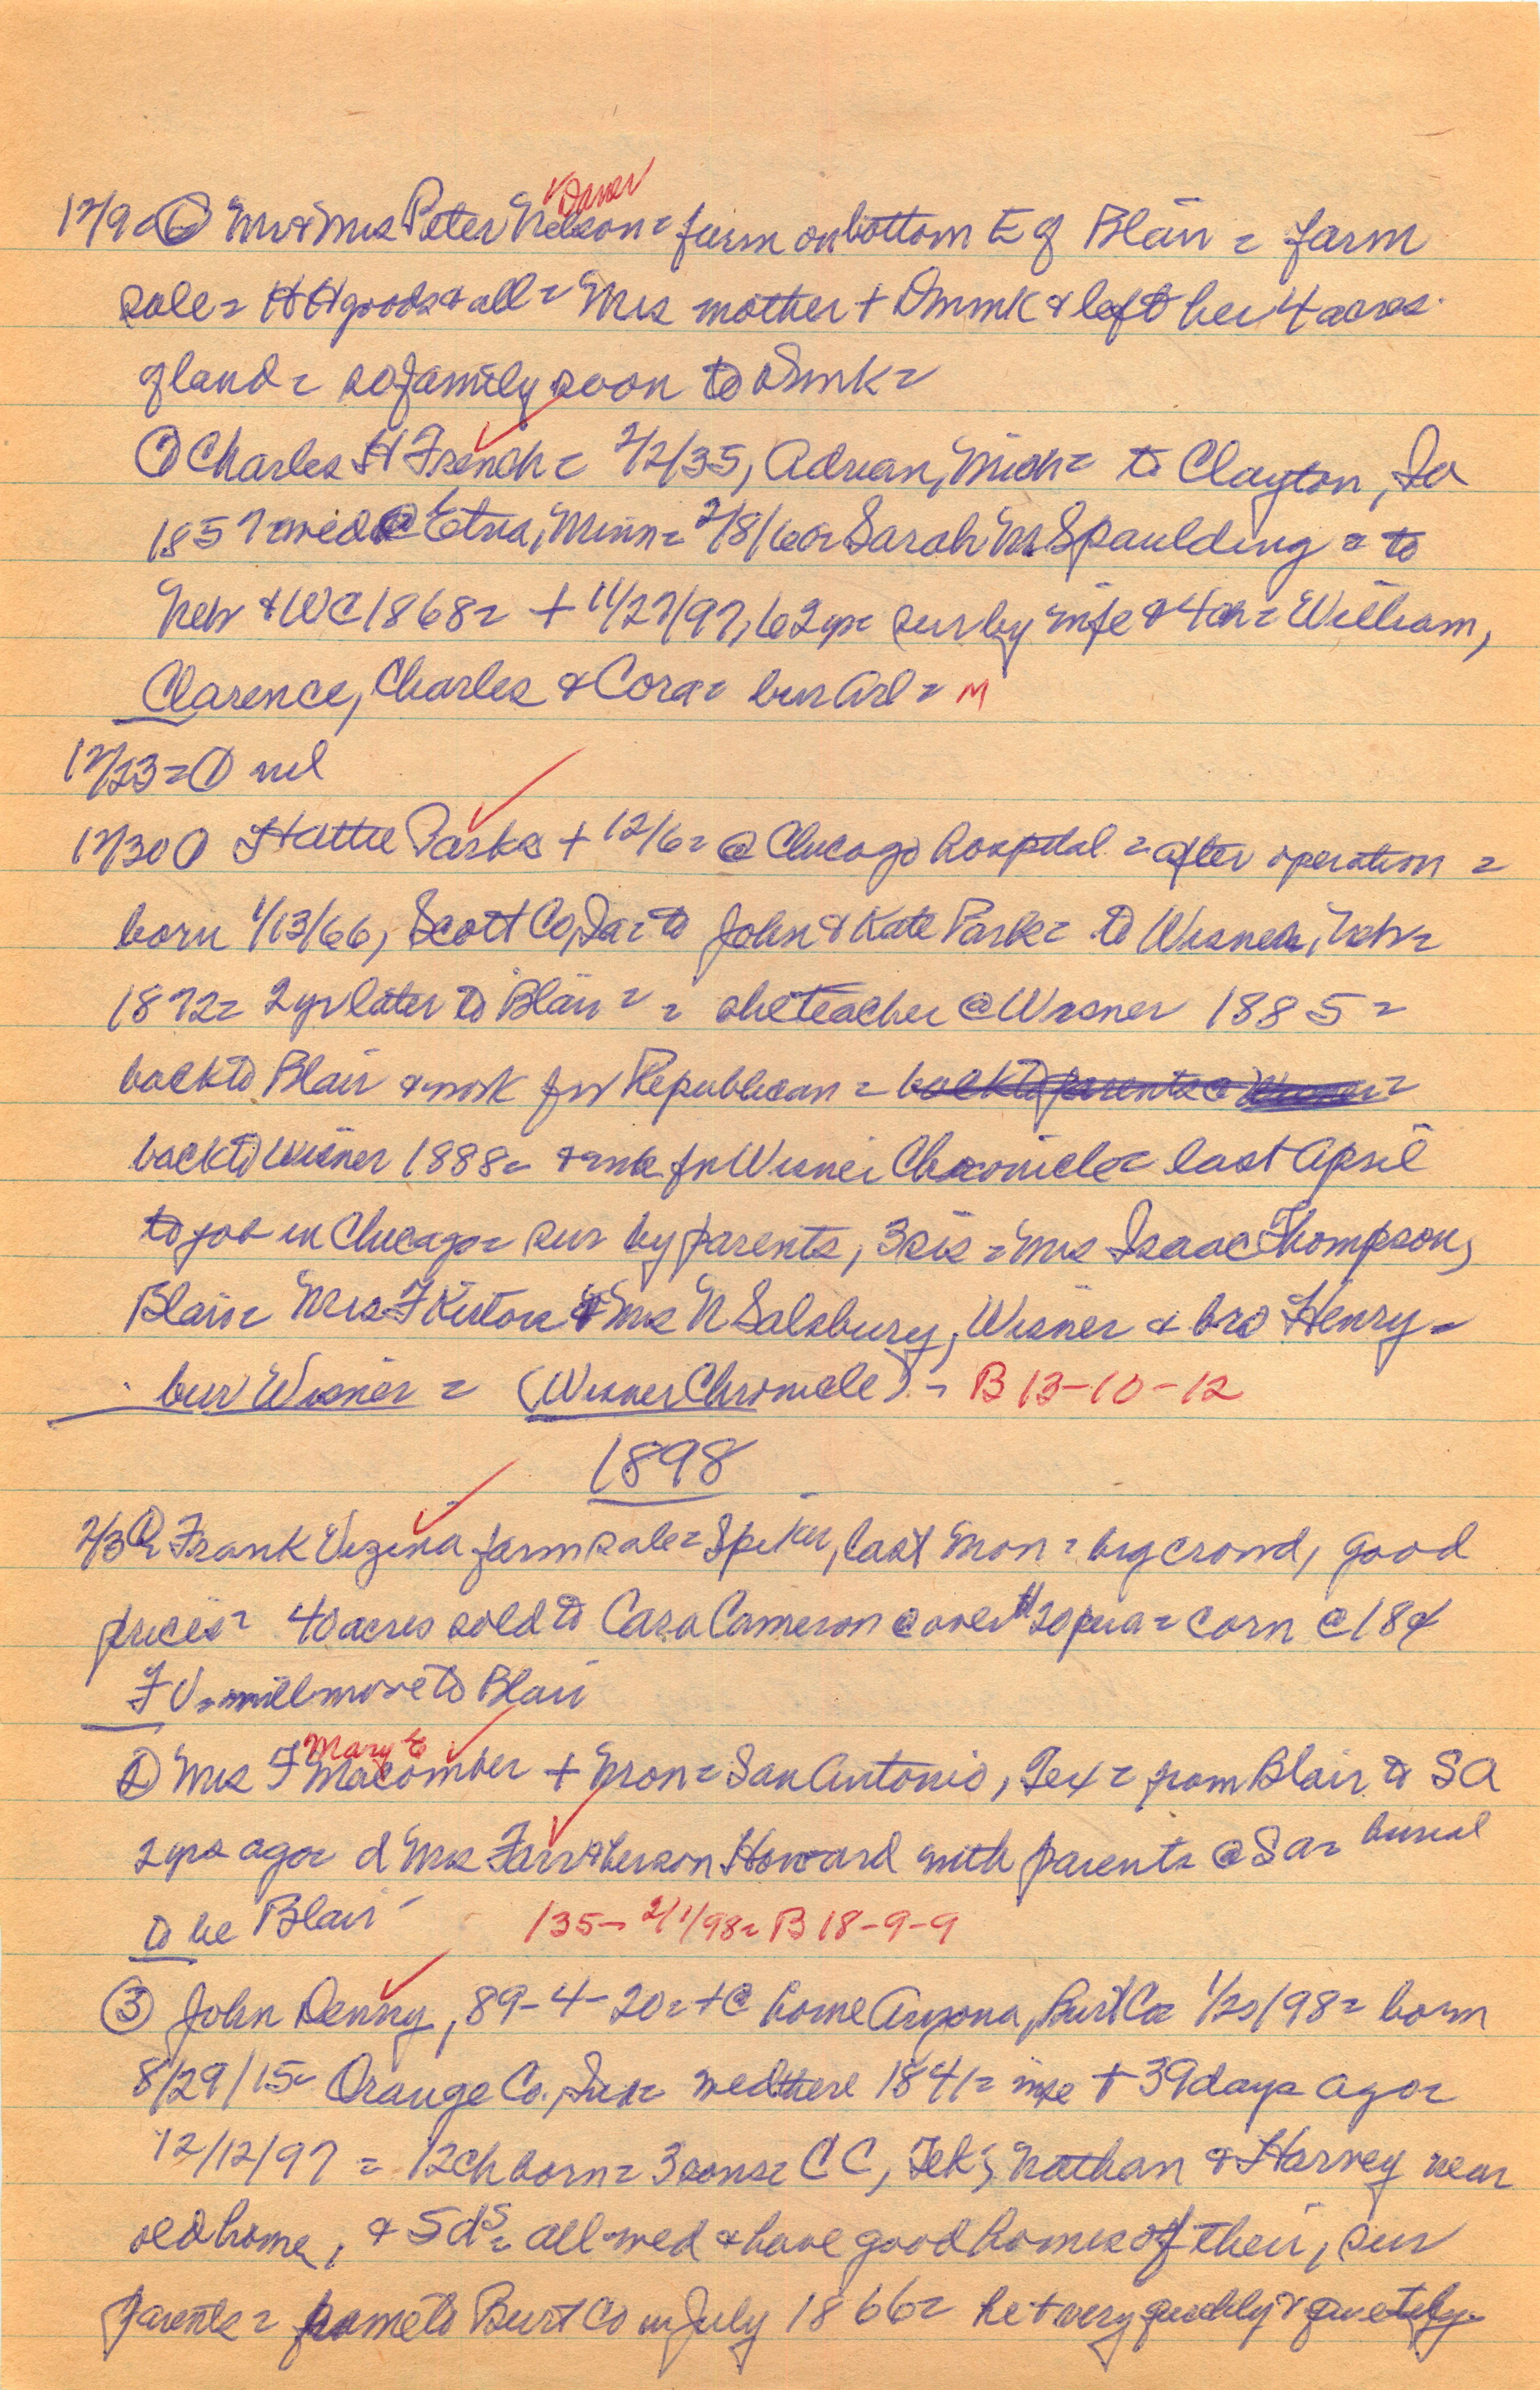 Danes
12/9 = ① Mr & Mrs Peter Nelson = farm on bottom E of Blair = farm
sale = HH goods & all = Mrs mother + Dnmk & left her 4 acres
of land = so family soon to Dnmk =
① Charles H French = 2/2/35, Adrian, Mich = to Clayton, Ia
1857 = wed @ Etna, Minn = 2/8/60 = Sarah M Spaulding = to
Neb & WC 1868 = + 11/27/97, 62 yr = sur by wife & 4 ch = William,
Clarence, Charles & Cora = bur Arl = M
12/23 = ① nil
12/30 ① Hattie Parks + 12/6 = @ Chicago hospital = after operation =
born 1/13/66, Scott Co, Ia = to John & Kate Park = to Wisner, Neb =
1872 = 2 yr later to Blair = = she teacher @ Wisner 1885 =
back to Blair & work for Republican = back to parents @ Wisner =
back to Wisner 1888 = & wk for Wisner Chronicle = last April
to job in Chicago = sur by parents, 3 sis = Mrs Isaac Thompson,
Blair = Mrs F Kiston & Mrs N Salsbury, Wisner & bro Henry =
bur Wisner = (Wisner Chronicle) - B 13-10-12
1898
2/3 ① Frank Vezina farm sale = Spiker, last Mon = big crowd, good
prices = 40 acres sold to Cara Cameron @ over $20 per a = corn @ 18¢
F V = will move to Blair
Mary E
② Mrs F Macomber + Mon = San Antonio, Tex = from Blair to SA
2 yrs ago = d Mrs Farr & her son Howard with parents @ SA = burial
to be Blair - 135 - 2/1/98 = B 18-9-9
③ John Denny, 89-4-20 = + @ home Aryona, Burt Co = 1/20/98 = born
8/29/15 = Orange Co., Ind = wed there 1841 = wife + 39 days ago =
12/12/97 = 12 ch born = 3 sons = C C, Tek; Nathan & Harvey near
old home, & 5 ds = all wed & have good homes of their, sur
parents = came to Burt Co in July 1866 = he + very quickly & quietly =